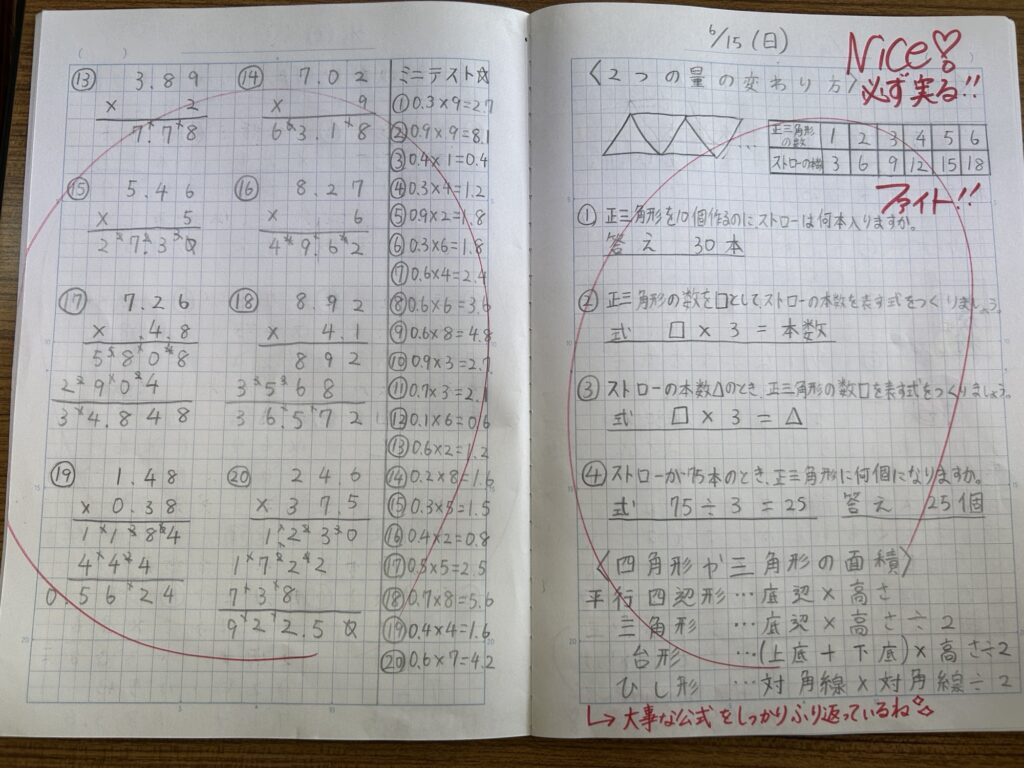 ⑬ 3.89
× 2
7.78
⑭ 7.02
× 9
63.18
⑮ 5.46
× 5
27.30
⑯ 8.27
× 6
49.62
⑰ 7.26
× 4.8
5808
2904
34.848
⑱ 8.92
× 4.1
892
3568
36.572
⑲ 1.48
× 0.38
1184
444
0.5624
⑳ 246
× 3.75
1230
1722
738
922.50
ミニテスト☆
① 0.3×9=2.7
② 0.9×9=8.1
③ 0.4×1=0.4
④ 0.3×4=1.2
⑤ 0.9×2=1.8
⑥ 0.3×6=1.8
⑦ 0.6×4=2.4
⑧ 0.6×6=3.6
⑨ 0.6×8=4.8
⑩ 0.9×3=2.7
⑪ 0.7×3=2.1
⑫ 0.1×6=0.6
⑬ 0.6×2=1.2
⑭ 0.2×8=1.6
⑮ 0.3×5=1.5
⑯ 0.4×2=0.8
⑰ 0.5×5=2.5
⑱ 0.7×8=5.6
⑲ 0.4×4=1.6
⑳ 0.6×7=4.2
6/15(日)
Nice♡
必ず実る!!
〈2つの量の変わり方〉
正三角形の数 1 2 3 4 5 6
ストローの本数 3 6 9 12 15 18
ファイト!!
① 正三角形を10個作るのに、ストローは何本入りますか。
答え 30本
② 正三角形の数を□として、ストローの本数を表す式をつくりましょう。
式 □×3=本数
③ ストローの本数△のとき、正三角形の数□を表す式をつくりましょう。
式 □×3=△
④ ストローが75本のとき、正三角形に何個になりますか。
式 75÷3=25 答え 25個
〈四角形か三角形の面積〉
平行四辺形…底辺×高さ
三角形…底辺×高さ÷2
台形…(上底+下底)×高さ÷2
ひし形…対角線×対角線÷2
↳大事な公式をしっかりふり返っているね